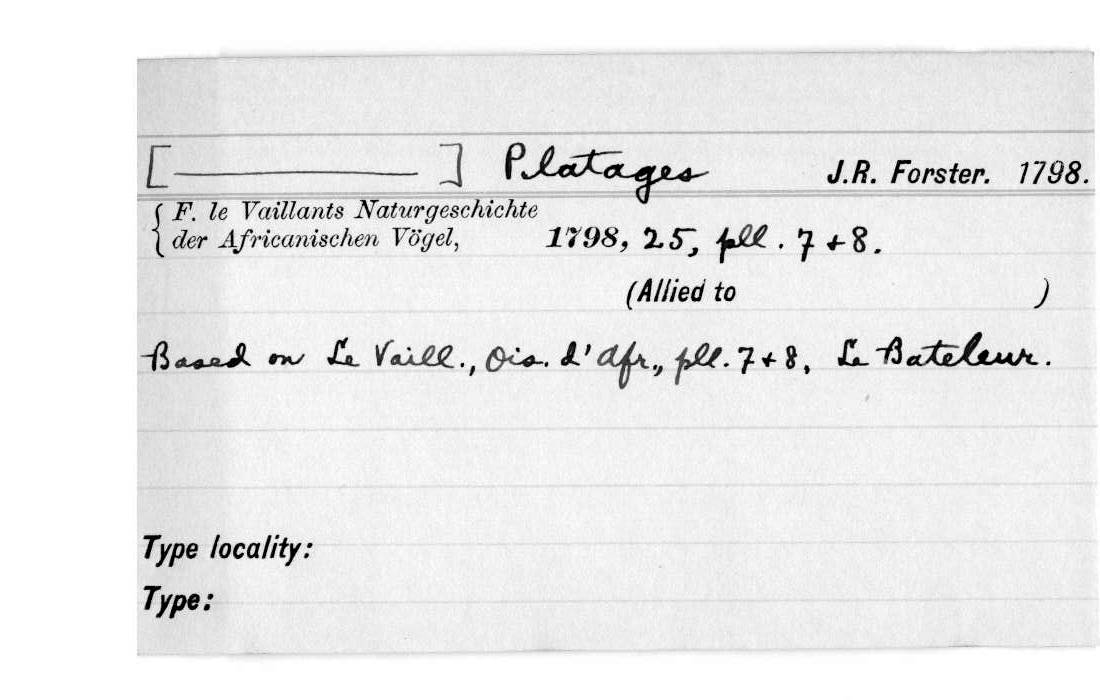 [ ——— ] Platages J.R. Forster. 1798.
{ F. le Vaillants Naturgeschichte
der Africanischen Vögel, 1798, 25, pll. 7 + 8.
(Allied to )
Based on Le Vaill., Ois. d'Afr., pll. 7 + 8, Le Bateleur.
Type locality:
Type: